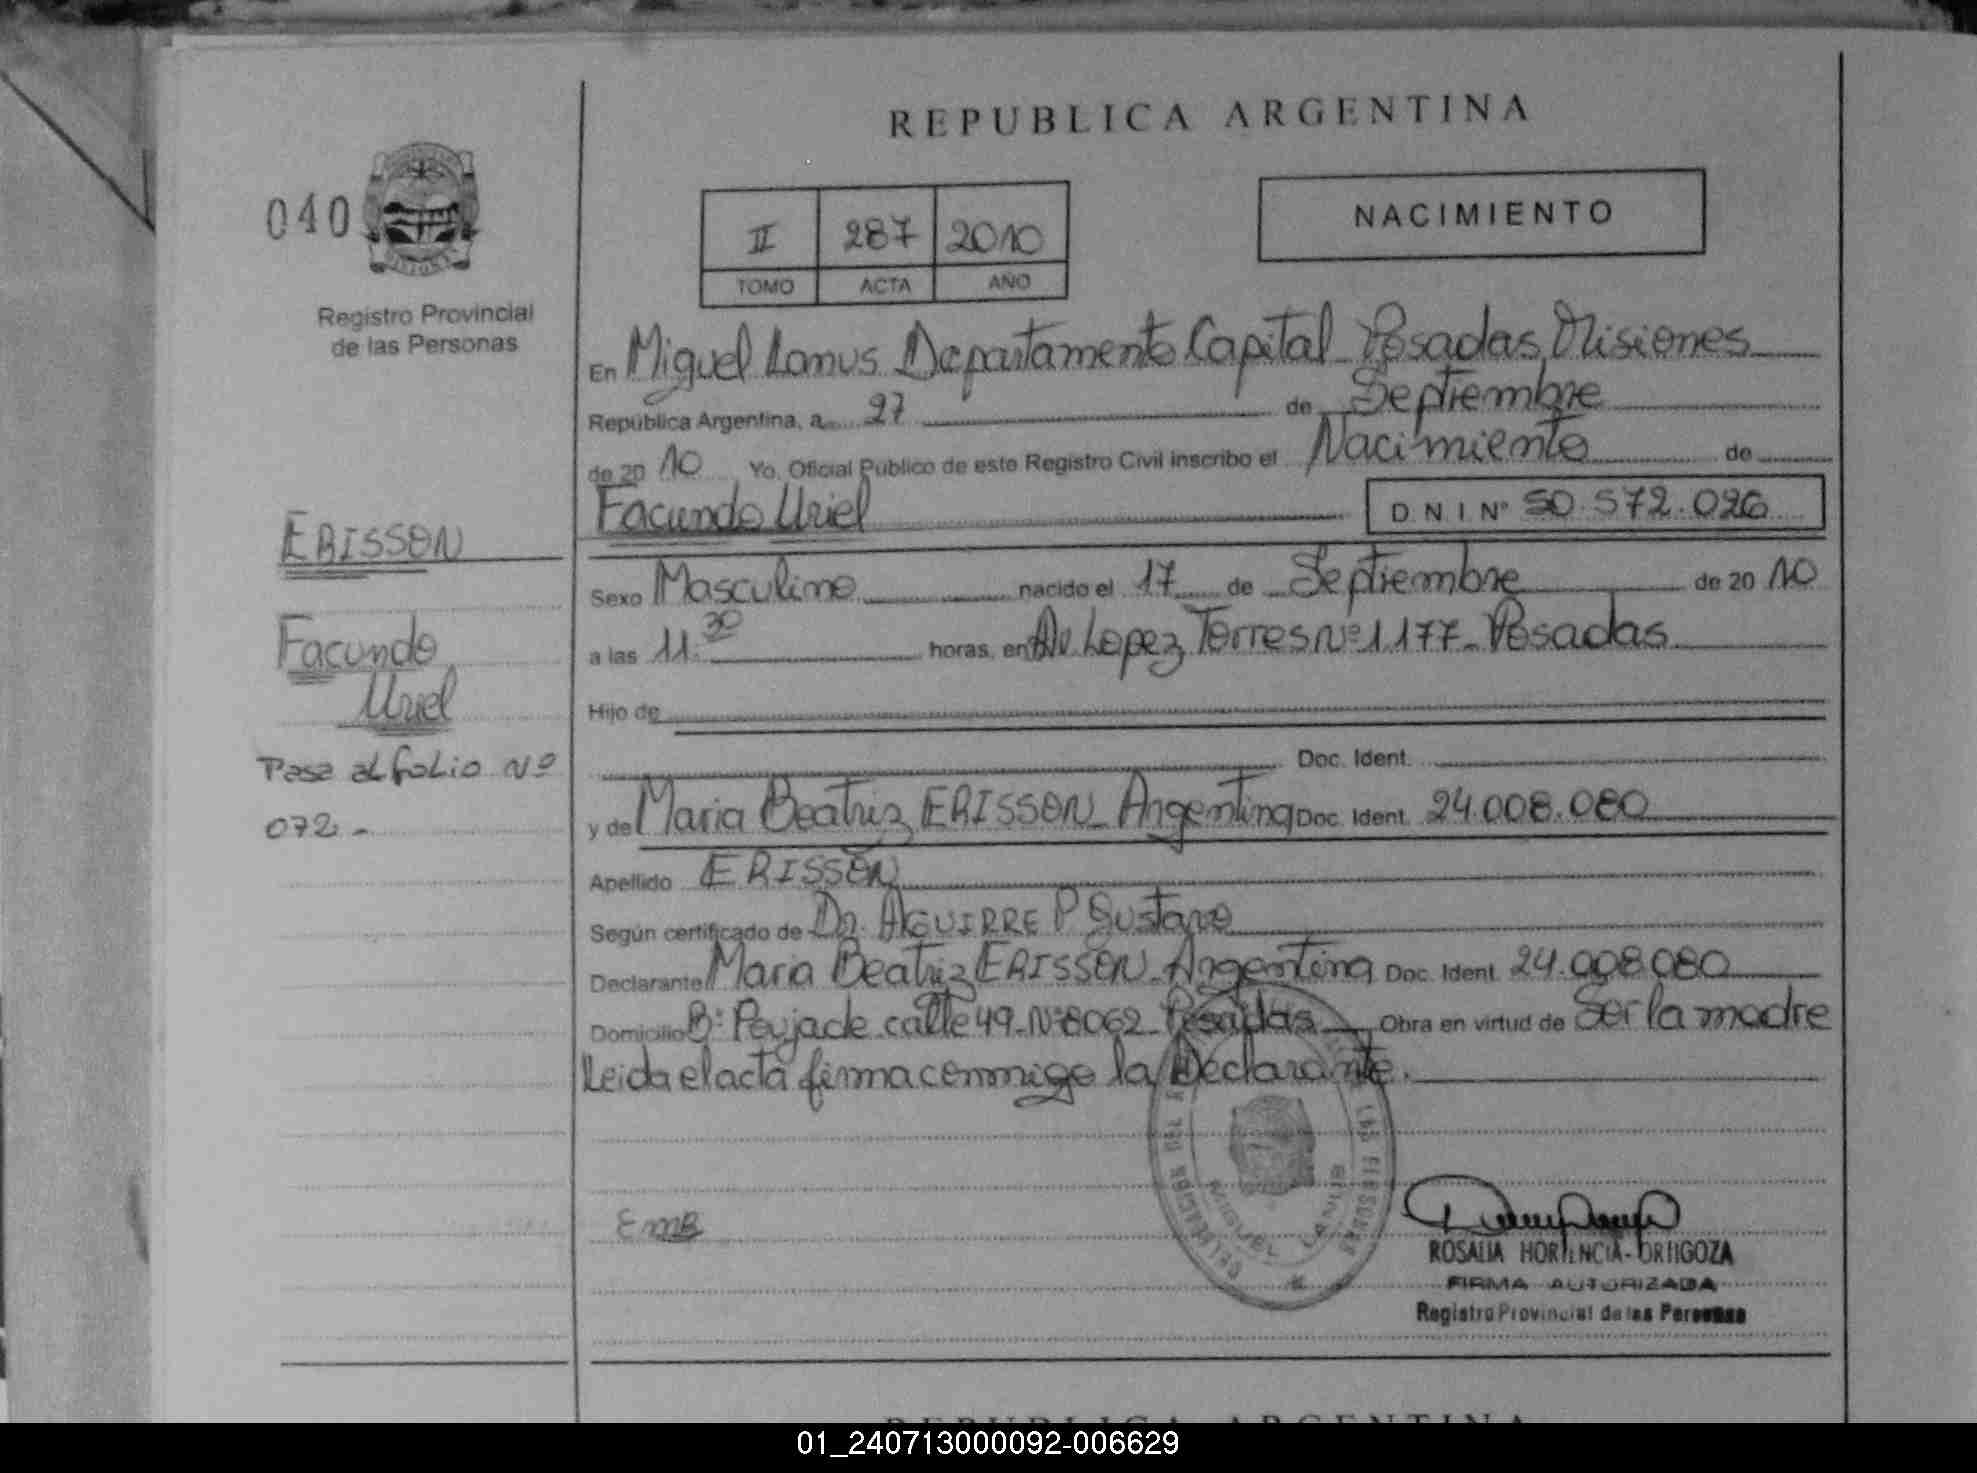 REPUBLICA ARGENTINA
040
NACIMIENTO
II 287 2010
TOMO ACTA AÑO
Registro Provincial
de las Personas
En Miguel Lanus Departamento Capital Posadas Misiones
República Argentina, a 27 de Septiembre
de 20 10 Yo, Oficial Público de este Registro Civil inscribo el Nacimiento de
Facundo Uriel DNI Nº 50.572.026
ERISSON
Sexo Masculino nacido el 17 de Septiembre de 20 10
Facundo
Uriel
a las 11:30 horas, en Av. Lopez Torres Nº 1177- Posadas
Hijo de
Pasa al folio Nº
072.-
Doc. Ident.
y de Maria Beatriz ERISSON- Argentina Doc. Ident. 24.008.080
Apellido ERISSON
Según certificado de Dr. AGUIRRE P Gustavo
Declarante Maria Beatriz ERISSON- Argentina Doc. Ident. 24.008.080
Domicilio Bº calle 49- Nº 8062- Posadas Obra en virtud de Ser la madre
Leida el acta firma conmigo la Declarante.
ROSALIA HORTENCIA ORTIGOZA
FIRMA AUTORIZADA
Registro Provincial de las Personas
REPUBLICA ARGENTINA
01_240713000092-006629